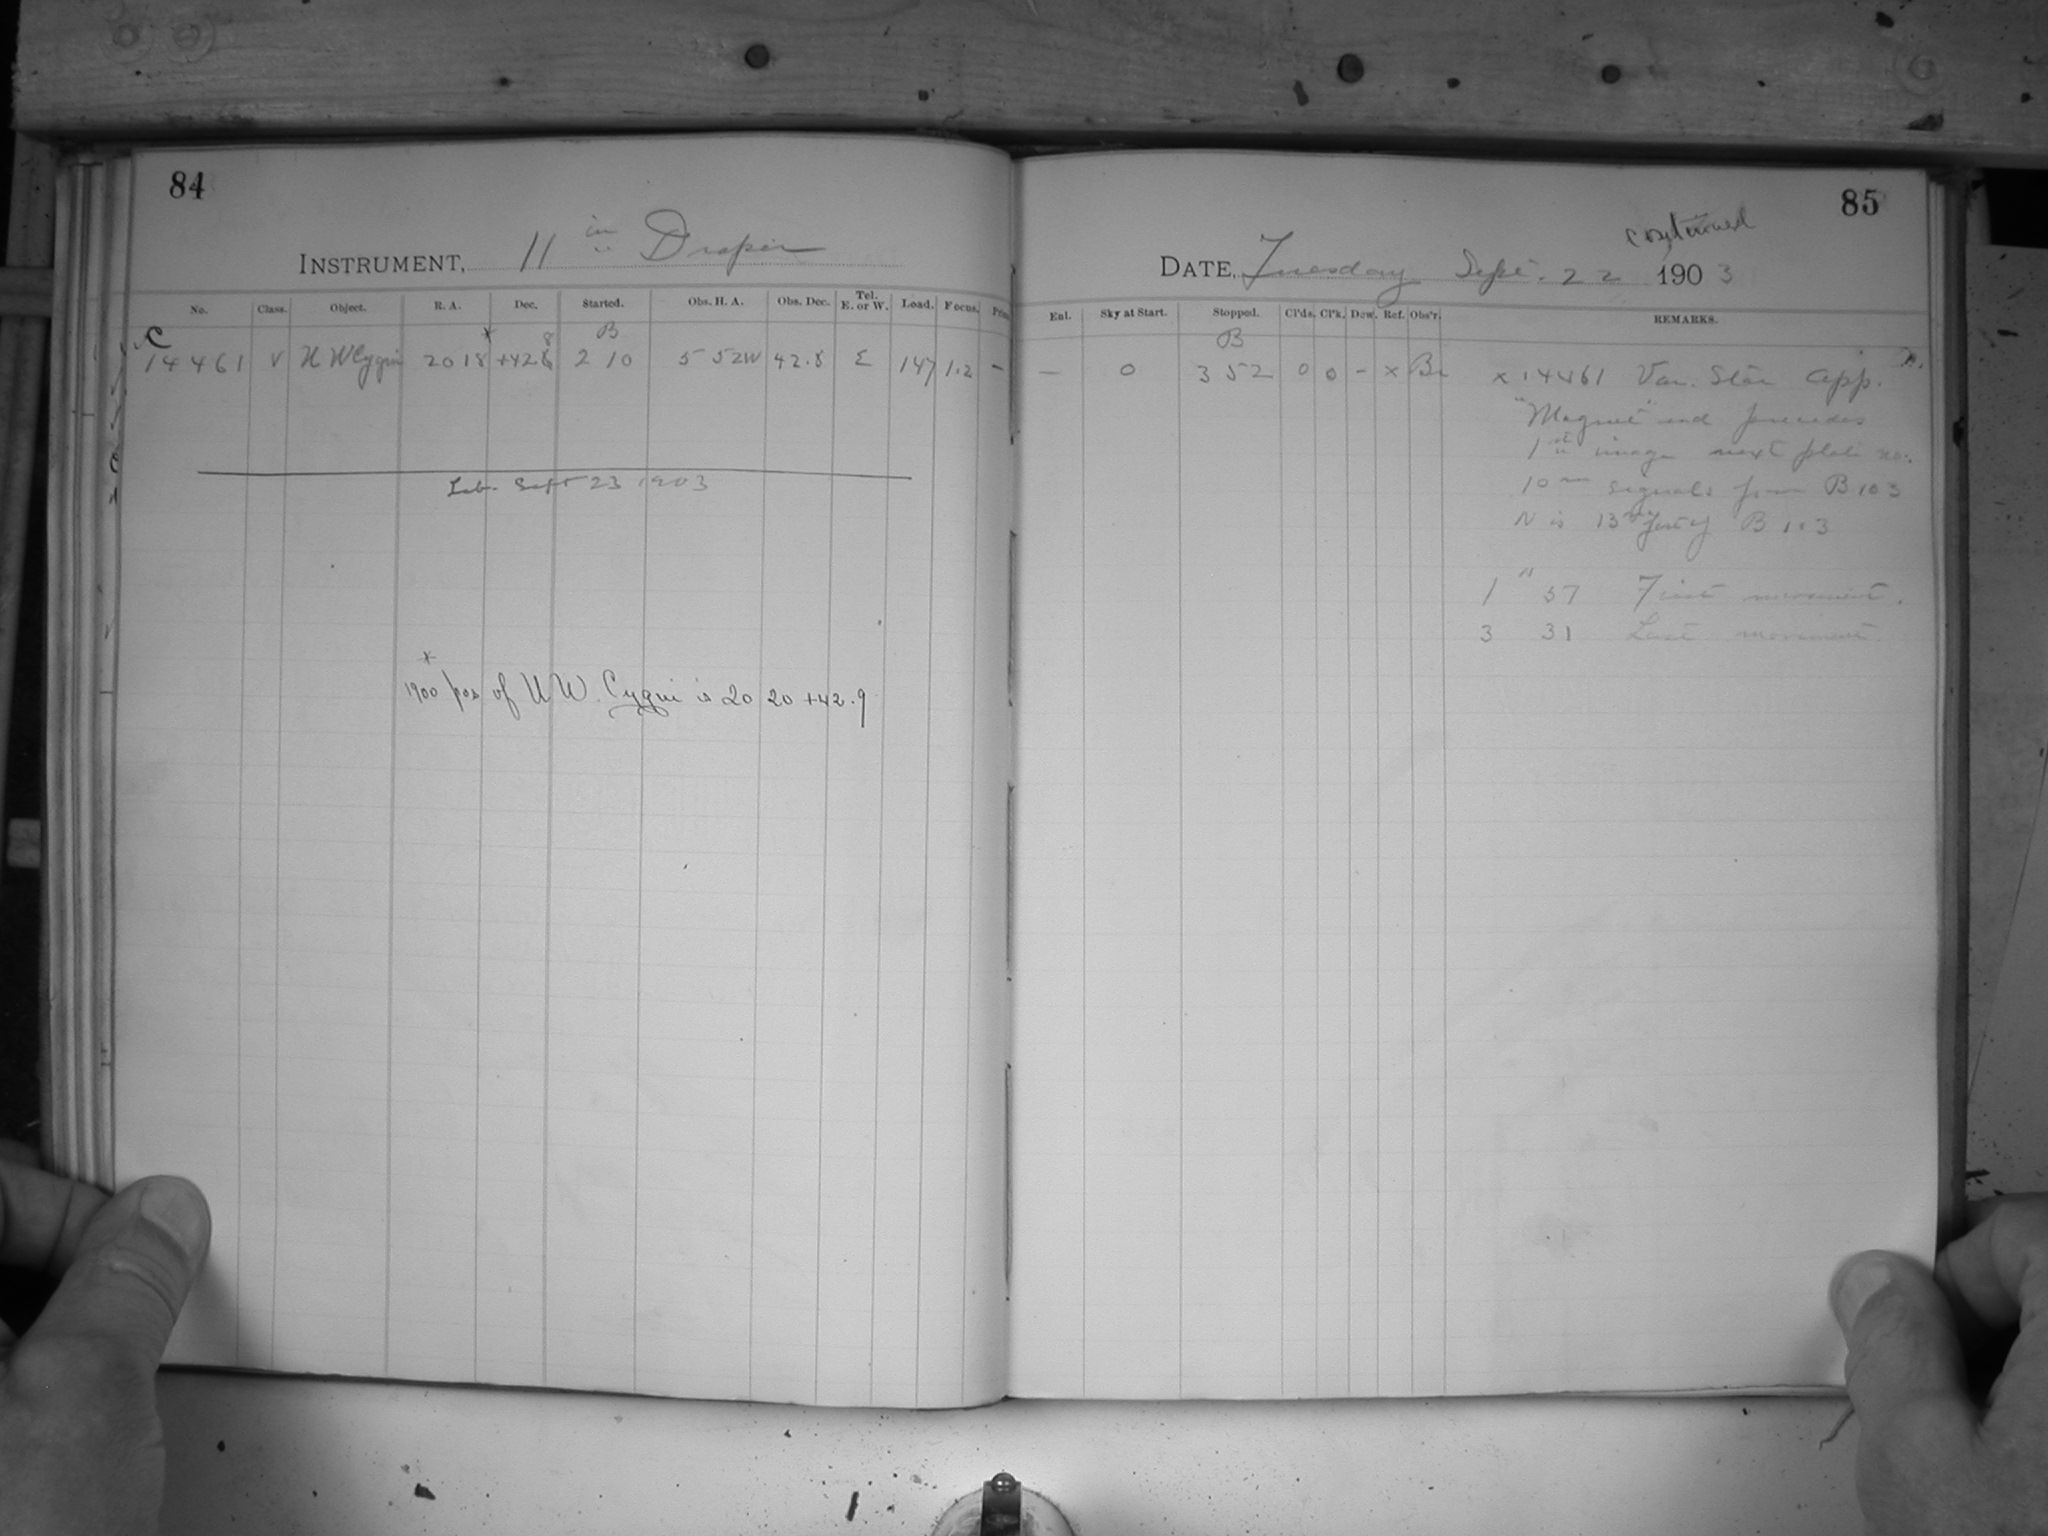 84
INSTRUMENT, 11 in Draper
No. Class. Object. R. A. Dec. Started. Obs. H. A. Obs. Dec. Tel. E. or W. Load. Focus.
B
C 14461 V UW Cygni 20 18 * +42.8 2 10 5 52W 42.8 E 147 1.2 —
Sept 23 1903
*
1900 pos of UW. Cygni is 20 20 +42.9
85
continued
DATE, Tuesday Sept. 22 1903
Enl. Sky at Start. Stopped. Cl'ds. Cl'k. Dew. Ref. Obs'r. REMARKS.
B
— 0 3 52 0 0 - x x 14461 Var. Star app.
"Magnet" end precedes
1st image next plate no.
10m signals from B 103
N is 13m of B 103
1 57 First movement.
3 31 Last movement.